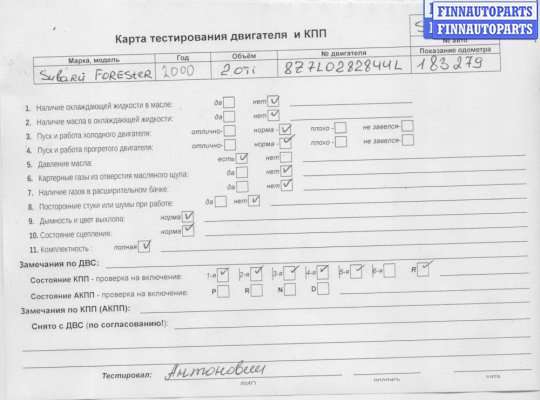 FINNAUTOPARTS
FINNAUTOPARTS
Карта тестирования двигателя и КПП
№ авто
Марка, модель Год Объём № двигателя Показание одометра
Subaru FORESTER 2000 2 oti 8Z7L0282844L 183 279
1. Наличие охлаждающей жидкости в масле: да нет
2. Наличие масла в охлаждающей жидкости: да нет
3. Пуск и работа холодного двигателя: отлично- норма - плохо - не завелся-
4. Пуск и работа прогретого двигателя: отлично- норма - плохо - не завелся-
5. Давление масла: есть нет
6. Картерные газы из отверстия масляного щупа: да нет
7. Наличие газов в расширительном бачке: да нет
8. Посторонние стуки или шумы при работе: да нет
9. Дымность и цвет выхлопа: норма
10. Состояние сцепления: норма
11. Комплектность : полная
Замечания по ДВС:
Состояние КПП - проверка на включение: 1-я 2-я 3-я 4-я 5-я 6-я R
Состояние АКПП - проверка на включение: P R N D
Замечания по КПП (АКПП):
Снято с ДВС (по согласованию!):
Тестировал: Антонович